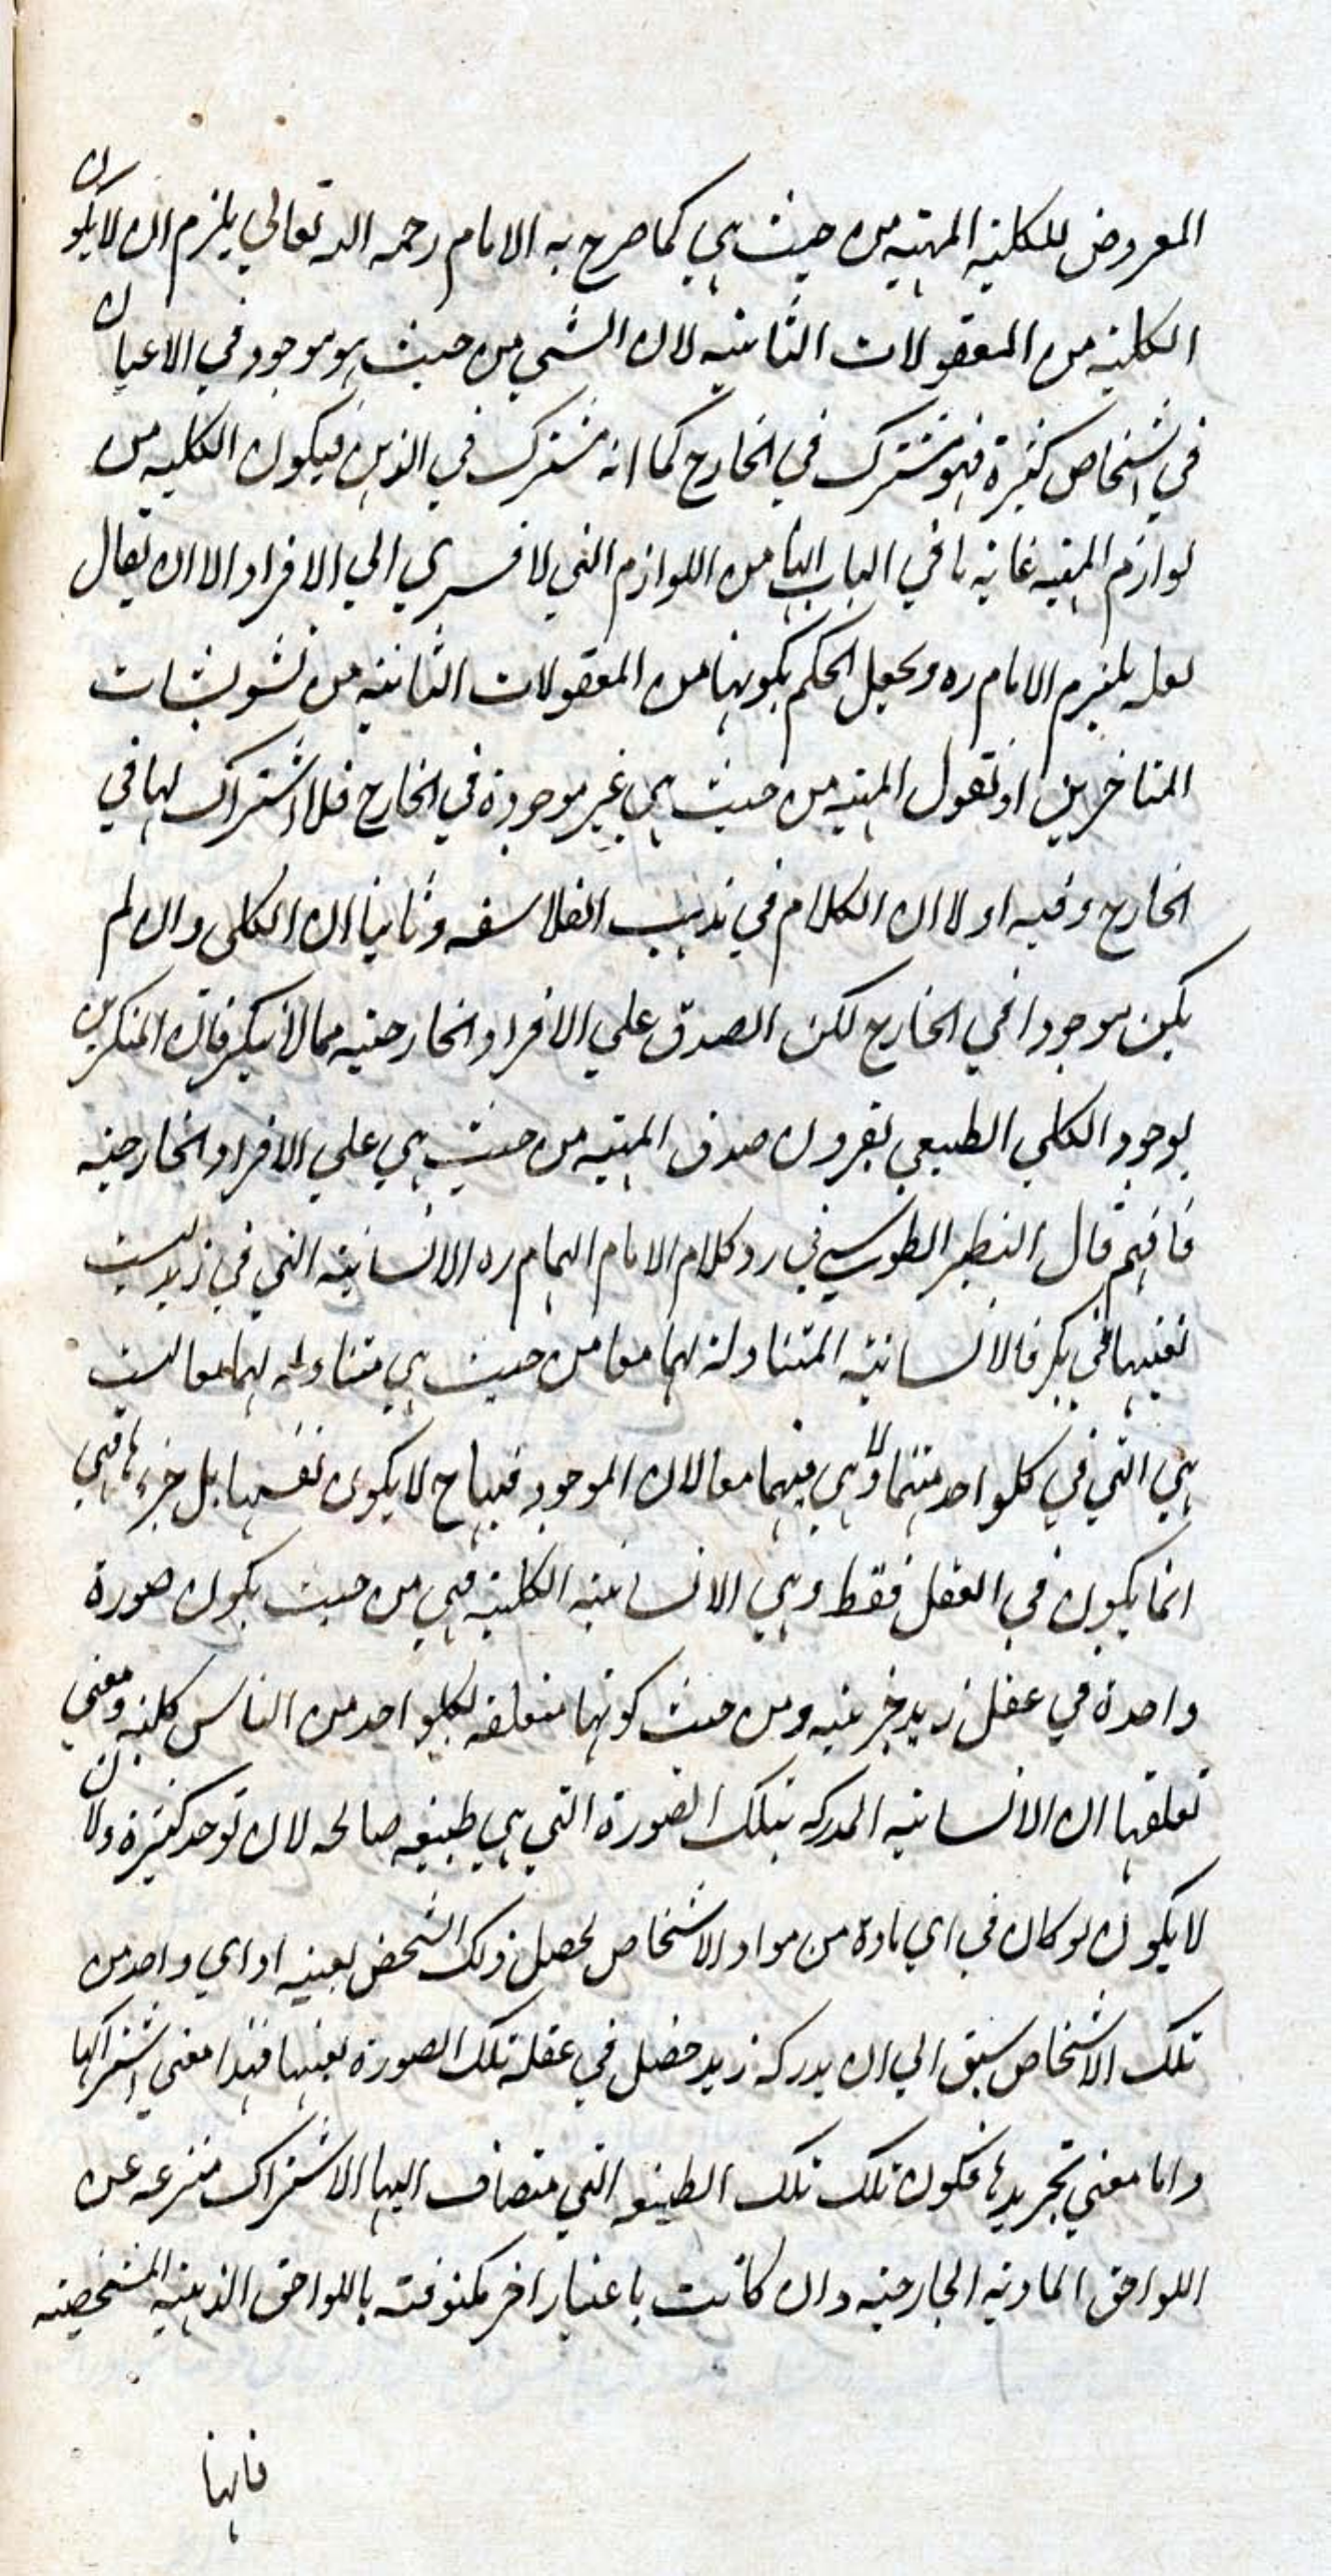 المعروض للكلية المهية من حيث هي كما صرح به الامام رحمه الله تعالي يلزم ان لا يكون
الكلية من المعقولات الثانية لان الشي من حيث هو موجود في الاعيان
في اشخاص كثيرة فهو مشترك في الخارج كما انه مشترك في الذهن فيكون الكلية من
لوازم المهية غاية ما في الباب انها من اللوازم التي لا تسري الي الافراد الا ان يقال
لعله يلتزم الامام ره ويجعل الحكم بكونها من المعقولات الثانية من تشويشات
المتاخرين او نقول المهية من حيث هي غير موجودة في الخارج فلا اشتراك لها في
الخارج وفيه اولا ان الكلام في مذهب الفلاسفه وثانيا ان الكلي وان لم
يكن موجودا في الخارج لكن الصدق علي الافراد الخارجية مما لا ينكر فان المنكرين
بوجود الكلي الطبيعي يقرون صدق المهية من حيث هي علي الافراد الخارجية
فافهم قال النصير الطوسي في رد كلام الامام الهمام ره الانسانية التي في زيد ليست
بعينها في بكر فالانسانية المتناولة لهما معا من حيث هي متناوله لهما معا ليست
هي التي في كلواحد منهما ولا هي فيهما معا لان الموجود فيها ح لا يكون نفسها بل جزءها فهي
انما يكون في العقل فقط وهي الانسانية الكلية فهي من حيث يكون صورة
واحدة في عقل زيد جزئية ومن حيث كونها متعلقه لكلواحد من الناس كلية ومعني
تعلقها ان الانسانية المدركه بتلك الصورة التي هي طبيعه صالحه لان توجد كثيرة ولان
لا يكون لو كان في اي مادة من مواد الاشخاص لحصل ذلك الشخص بعينه او اي واحد من
تلك الاشخاص سبق الي ان يدركه زيد حصل في عقله تلك الصورة بعينها فهذا معني اشتراكها
واما معني تجريدها فكون تلك تلك الطبيعه التي متضاف اليها الاشتراك منتزعه عن
اللواحق المادية الخارجية وان كانت باعتبار اخر مكنوفة باللواحق الذهنية المشخصيه
فانها